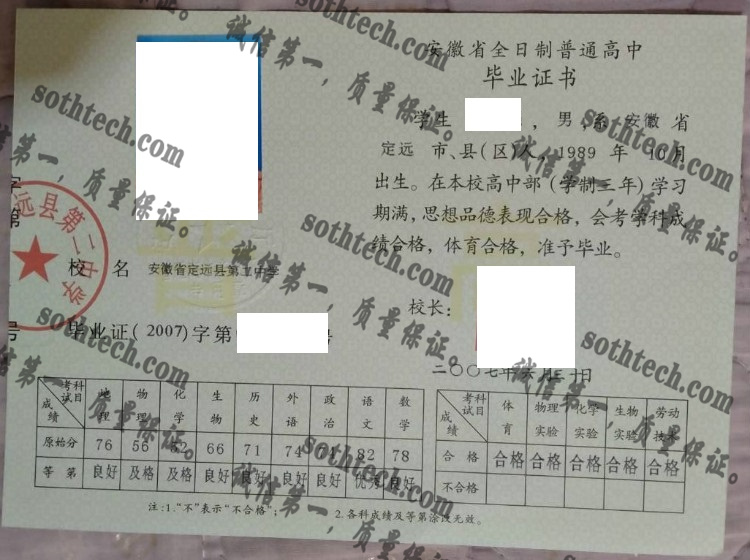 安徽省全日制普通高中
毕业证书
学生 , 男, 系 安徽 省
定远 市、县(区)人, 1989 年 10月
出生。在本校高中部(学制三年)学习
期满, 思想品德表现合格, 会考学科成
绩合格, 体育合格, 准予毕业。
校长:
二〇〇七年六月 日
字
第
号
远县第二中学
校 名 安徽省定远县第二中学
毕业证(2007)字第 号
考试科目 成绩 地理 物理 化学 生物 历史 外语 政治 语文 数学
原始分 76 56 66 71 74 82 78
等 第 良好 及格 及格 良好 良好 良好 良好 优秀 良好
考试科目 成绩 体育 物理实验 化学实验 生物实验 劳动技术
合 格 合格 合格 合格 合格 合格
不合格
注:1."不"表示"不合格"; 2.各科成绩及等第涂改无效。
sothtech.com
诚信第一,质量保证。
sothtech.com
诚信第一,质量保证。
sothtech.com
诚信第一,质量保证。
sothtech.com
诚信第一,质量保证。
sothtech.com
诚信第一,质量保证。
sothtech.com
诚信第一,质量保证。